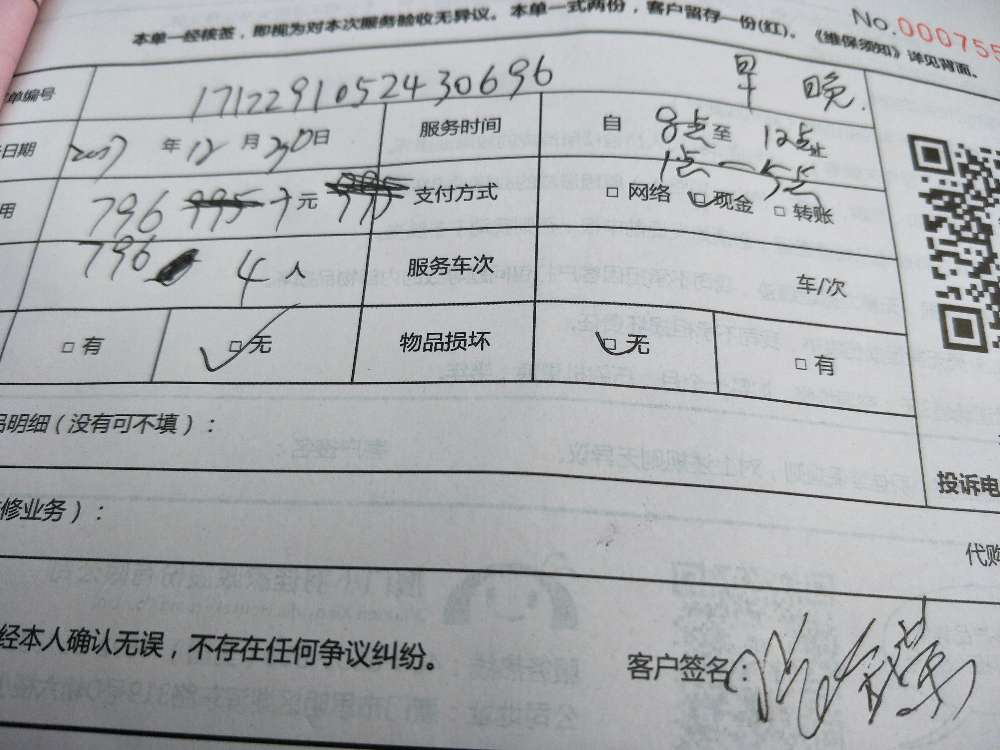 本单一经核签，即视为对本次服务验收无异议。本单一式两份，客户留存一份(红)。《维保须知》详见背面。
No.000755
单编号 1712291052430696 早 晚
日期 2017年12月30日 服务时间 自 8点至 12点止
1点 5点
用 796 元 支付方式 □ 网络 □ 现金 □ 转账
796 4 人 服务车次 车/次
□ 有 □ 无 物品损坏 □ 无 □ 有
明细（没有可不填）：
投诉电
修业务）：
代购
经本人确认无误，不存在任何争议纠纷。
客户签名：